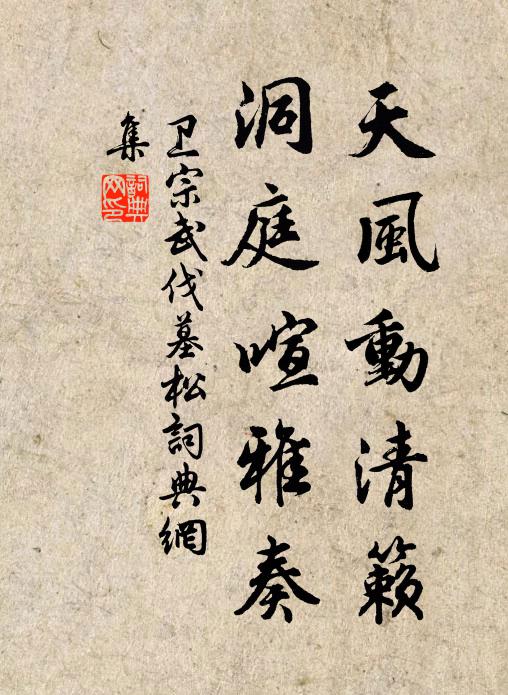 天風動清籟
洞庭喧雅奏
卫宗武伐墓松詞典網
集
詞典
网印